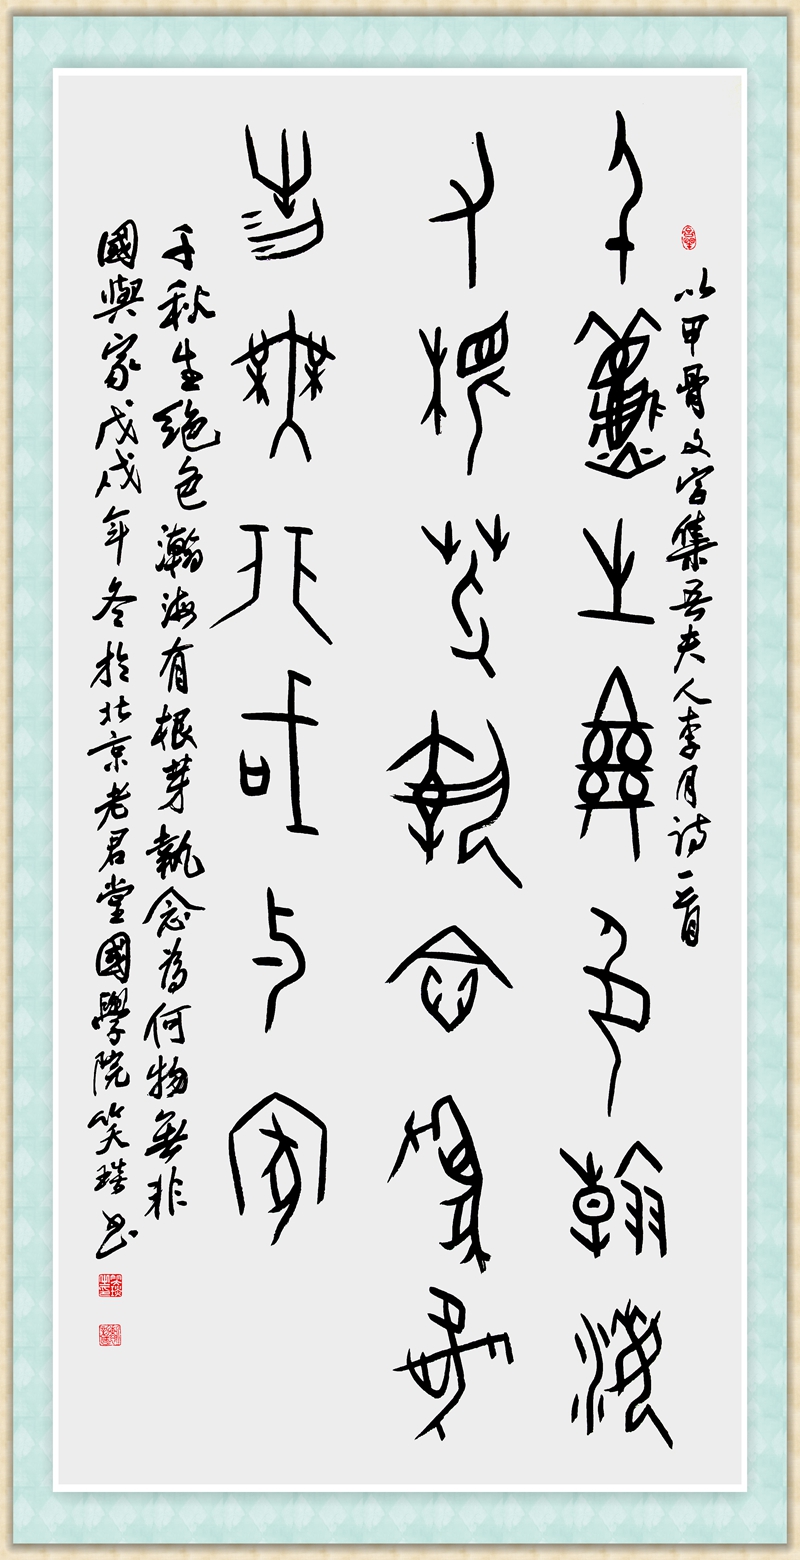 以甲骨文字集吾夫人李月詩一首
千秋生絕色瀚海
有根芽執念為何
物無非國與家
千秋生絕色瀚海有根芽執念為何物無非
國與家戊戌年冬於北京老君堂國學院笑書